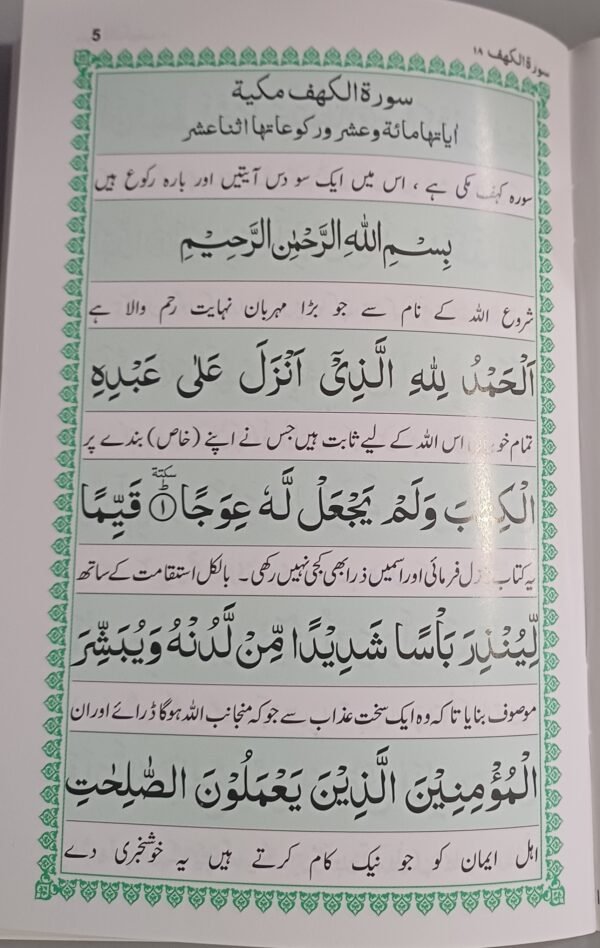 5
سورۃ الکهف ۱۸
سورة الكهف مكية
اٰیاتها مائة وعشر وركوعاتها اثنا عشر
سورہ کہف مکی ہے ، اس میں ایک سو دس آیتیں اور بارہ رکوع ہیں
بِسْمِ اللهِ الرَّحْمٰنِ الرَّحِيْمِ
شروع اللہ کے نام سے جو بڑا مہربان نہایت رحم والا ہے
اَلْحَمْدُ لِلّٰهِ الَّذِيْۤ اَنْزَلَ عَلٰى عَبْدِهِ
تمام اس اللہ کے لیے ثابت ہیں جس نے اپنے (خاص) بندے پر
الْكِتٰبَ وَلَمْ يَجْعَلْ لَّهٗ عِوَجًا ؕ سكتة ۱ قَيِّمًا
یہ کتاب فرمائی اور اسمیں ذرا بھی کجی نہیں رکھی۔ بالکل استقامت کے ساتھ
لِّيُنْذِرَ بَاْسًا شَدِيْدًا مِّنْ لَّدُنْهُ وَيُبَشِّرَ
موصوف بنایا تاکہ وہ ایک سخت عذاب سے جو کہ منجانب اللہ ہوگا ڈرائے اور ان
الْمُؤْمِنِيْنَ الَّذِيْنَ يَعْمَلُوْنَ الصّٰلِحٰتِ
اہل ایمان کو جو نیک کام کرتے ہیں یہ خوشخبری دے